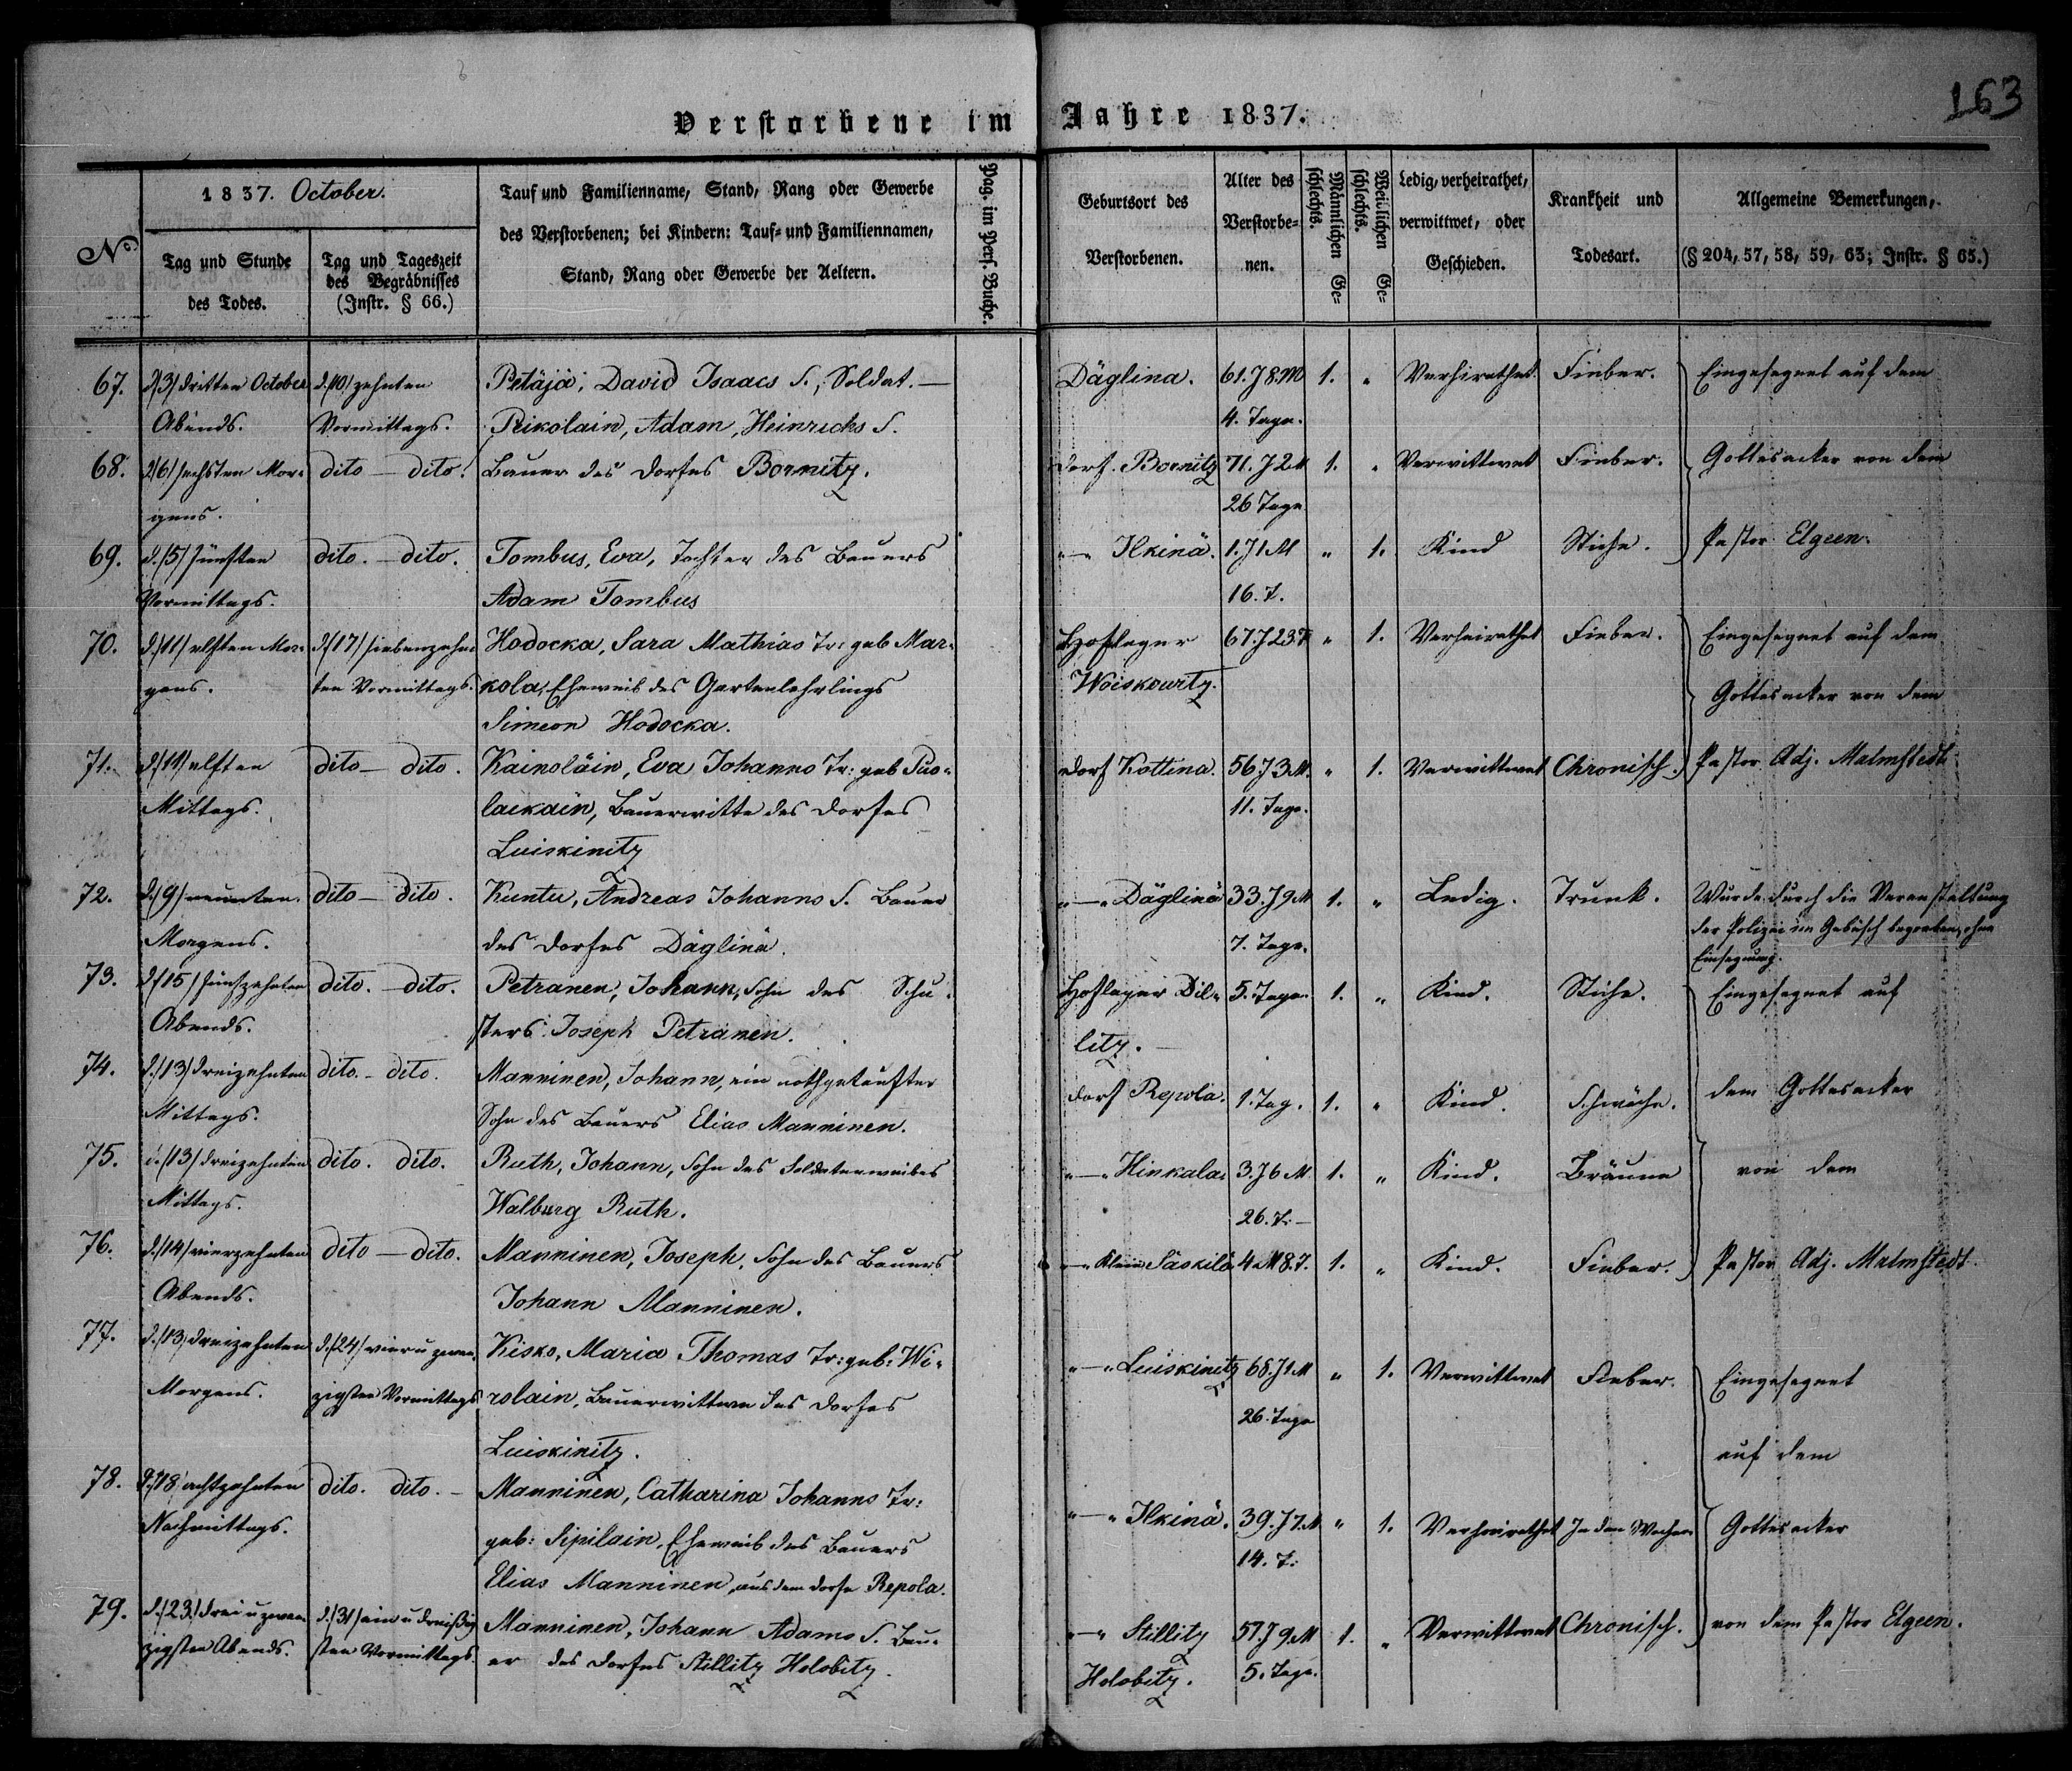 163
Verstorbene im Jahre 1837.
No.
1837. October.
Tag und Stunde des Todes.
Tag und Tageszeit des Begräbnisses (Instr. § 66.)
Tauf und Familienname, Stand, Rang oder Gewerbe
des Verstorbenen; bei Kindern: Tauf- und Familiennamen,
Stand, Rang oder Gewerbe der Aeltern.
Pag. im Pers. Buche.
Geburtsort des Verstorbenen.
Alter des Verstorbe-nen.
Männlichen Ge-schlechts.
Weiblichen Ge-schlechts.
Ledig, verheirathet, verwittwet, oder Geschieden.
Krankheit und Todesart.
Allgemeine Bemerkungen,
(§ 204, 57, 58, 59, 63; Instr. § 65.)
67. d. /3/ dritten October d. /10/ zehnten Petäjä, David Isaacs S., Soldat. — Däglina. 61. J 8. M 1. „ Verheirathet. Fieber. Eingesegnet auf dem
Abends. Vormittags. Pikolain, Adam, Heinrichs S. 4. Tage.
68. d. /6/ sechsten Mor- dito — dito. Bauer des Dorfes Bornitz. Dorf. Bornitz 71. J 2 M 1. „ Verwittwet Fieber. Gottesacker von dem
gens. 26 Tage
69. d. /5/ fünften dito. — dito. Tombus, Eva, Tochter des Bauers „—„ Ilkinä. 1. J 1 M „ 1. Kind Stiche. Pastor Elgeen.
Vormittags. Adam Tombus 16. T.
70. d. /11/ elften Mor- d. /17/ siebenzehn- Hodocka, Sara Mathias Tr: geb Mar- Hoflager 67. J 23. T „ 1. Verheirathet Fieber. Eingesegnet auf dem
gens. ten Vormittags. kola, Eheweib des Gartenlehrlings Woiskowitz. Gottesacker von dem
Simeon Hodocka.
71. d. /11/ elften dito — dito. Kainoläin, Eva Johanns Tr: geb Puo- Dorf Kottina. 56 J 3 M. „ 1. Verwittwet Chronisch. Pastor Adj. Malmstedt
Mittags. lackain, Bauerwitte des Dorfes 11. Tage.
Luiskinitz
72. d. /9/ neunten dito — dito. Kuntu, Andreas Johanns S. Bauer „—„ Däglinä 33. J 9 M 1. „ Ledig. Trunk. Wurde durch die Veranstaltung
Morgens. des Dorfes Däglinä. 7. Tage. der Polizei im Gebüsch begraben, ohne
Einsegnung.
73. d. /15/ fünfzehnten dito. — dito. Petranen, Johann, Sohn des Schu- Hoflager Dil- 5. Tage. 1. „ Kind. Stiche. Eingesegnet auf
Abends. sters Joseph Petränen. litz. —
74. d. /13/ dreizehnten dito. — dito. Manninen, Johann, ein nothgetaufter Dorf Repola. 1. Tag. 1. „ Kind. Schwäche. dem Gottesacker
Mittags. Sohn des Bauers Elias Manninen.
75. d. /13/ dreizehnten dito. dito. Ruth, Johann, Sohn des Soldatenweibes „—„ Hinkala. 3. J 6 M 1. „ Kind. Bräune von dem
Mittags. Walburg Ruth. 26. T. —
76. d. /14/ vierzehnten dito — dito. Manninen, Joseph, Sohn des Bauers „—„ Klein Säskilä 4 M 8. T. 1. „ Kind. Fieber. Pastor Adj. Malmstedt.
Abends. Johann Manninen.
77. d. /13/ dreizehnten d. /24/ vier u zwan- Kisko, Maria Thomas Tr: geb: Wi- „—„ Luiskinitz 68. J 1. M „ 1. Verwittwet Fieber. Eingesegnet
Morgens. zigsten Vormittags rolain, Bauerwittwe des Dorfes 26. Tage
Luiskinitz. auf dem
78. d. /18/ achtzehnten dito. dito. — Manninen, Catharina Johanns Tr: „—„ Ilkinä. 39. J 7. M „ 1. Verheirathet In den Wochen Gottesacker
Nachmittags. geb: Sipilain, Eheweib des Bauers 14. T.
Elias Manninen, aus dem Dorfe Repola.
79. d. /23/ drei u zwan- d. /31/ ein u dreißig- Manninen, Johann Adams S. Bau- „—„ Stillitz 57. J 9. M 1. „ Verwittwet Chronisch. von dem Pastor Elgeen.
zigsten Abends. sten Vormittags. er des Dorfes Stillitz Holobitz. Holobitz. 5. Tage.